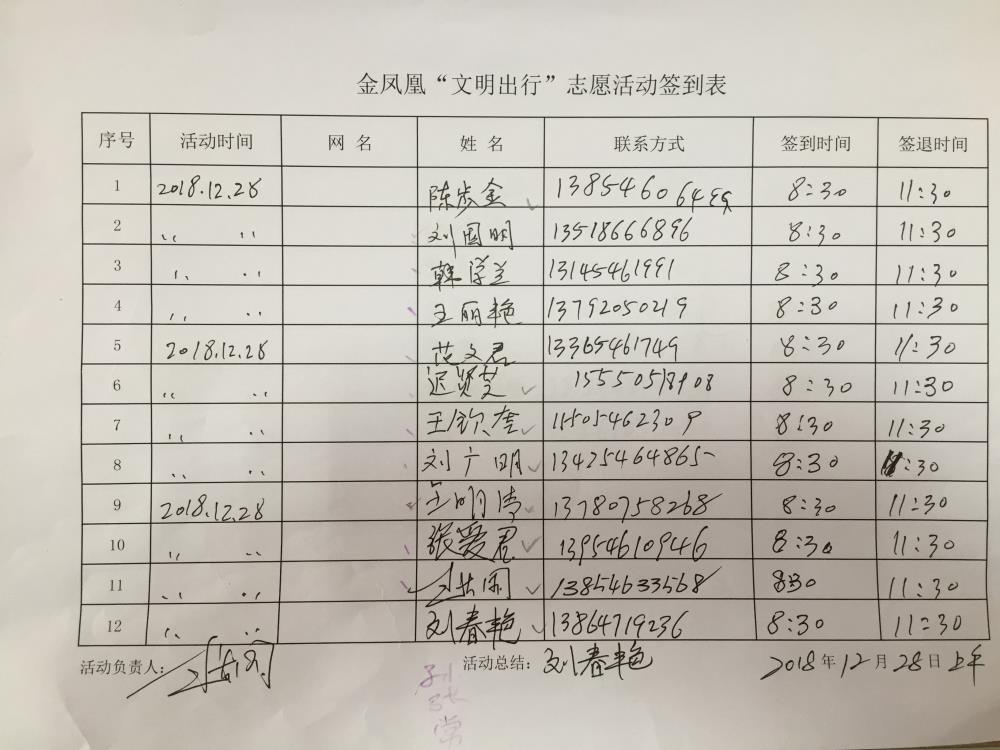 金凤凰“文明出行”志愿活动签到表
序号 活动时间 网 名 姓 名 联系方式 签到时间 签退时间
1 2018.12.28 陈步金 8:30 11:30
2 〃 〃 刘国明 13518666896 8:30 11:30
3 〃 〃 韩学兰 13145461991 8:30 11:30
4 〃 〃 王丽艳 13792050219 8:30 11:30
5 2018.12.28 范文君 13365461749 8:30 11:30
6 〃 〃 迟贤芝 8:30 11:30
7 〃 〃 王钦奎 15505462309 8:30 11:30
8 〃 〃 刘广明 13425464865 8:30 11:30
9 2018.12.28 王明涛 13780758268 8:30 11:30
10 〃 〃 张爱君 13954610946 8:30 11:30
11 〃 〃 13854633568 8:30 11:30
12 〃 〃 刘春艳 13864719236 8:30 11:30
活动负责人： 活动总结：刘春艳 2018年12月28日上午